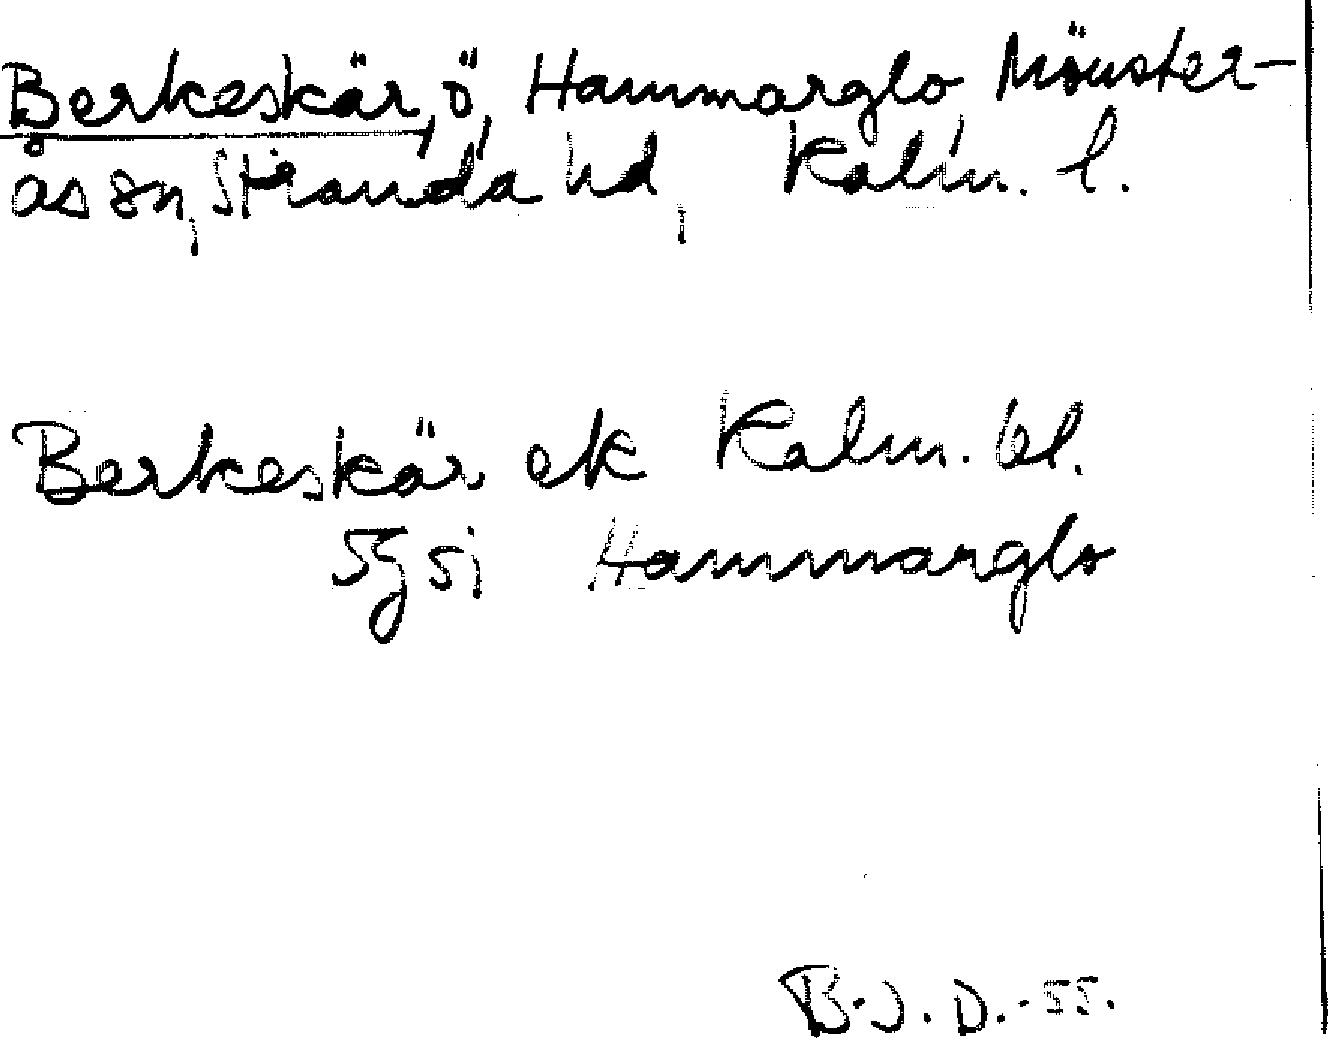 Berkeskär, ö, Hammarglo, Mönster-
ås sn, Stranda hd, Kalm. l.
Berkeskär ek Kalm. bl.
5g 5j Hammarglo
B.J.D.-55.